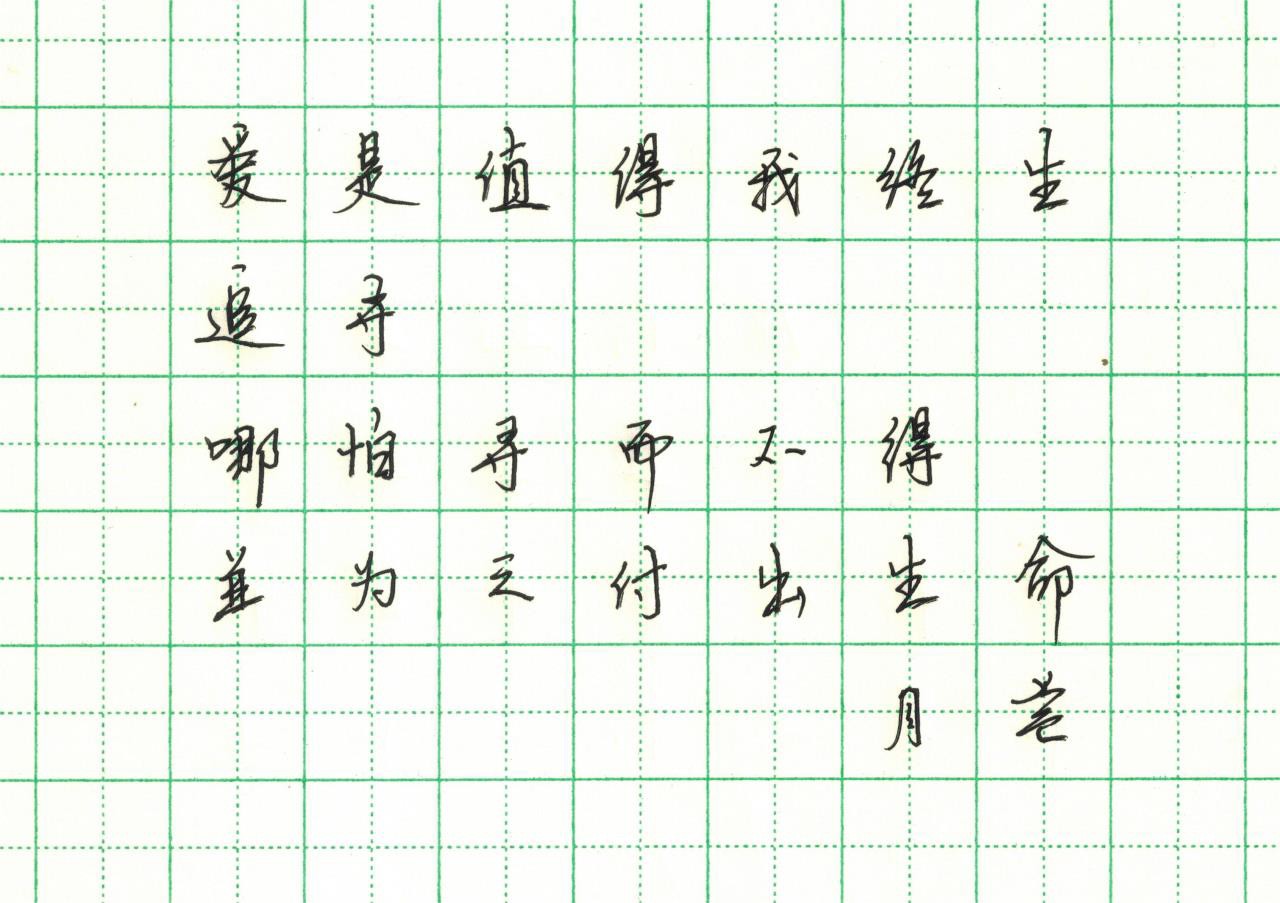 爱是值得我终生
追寻
哪怕寻而不得
并为之付出生命
月